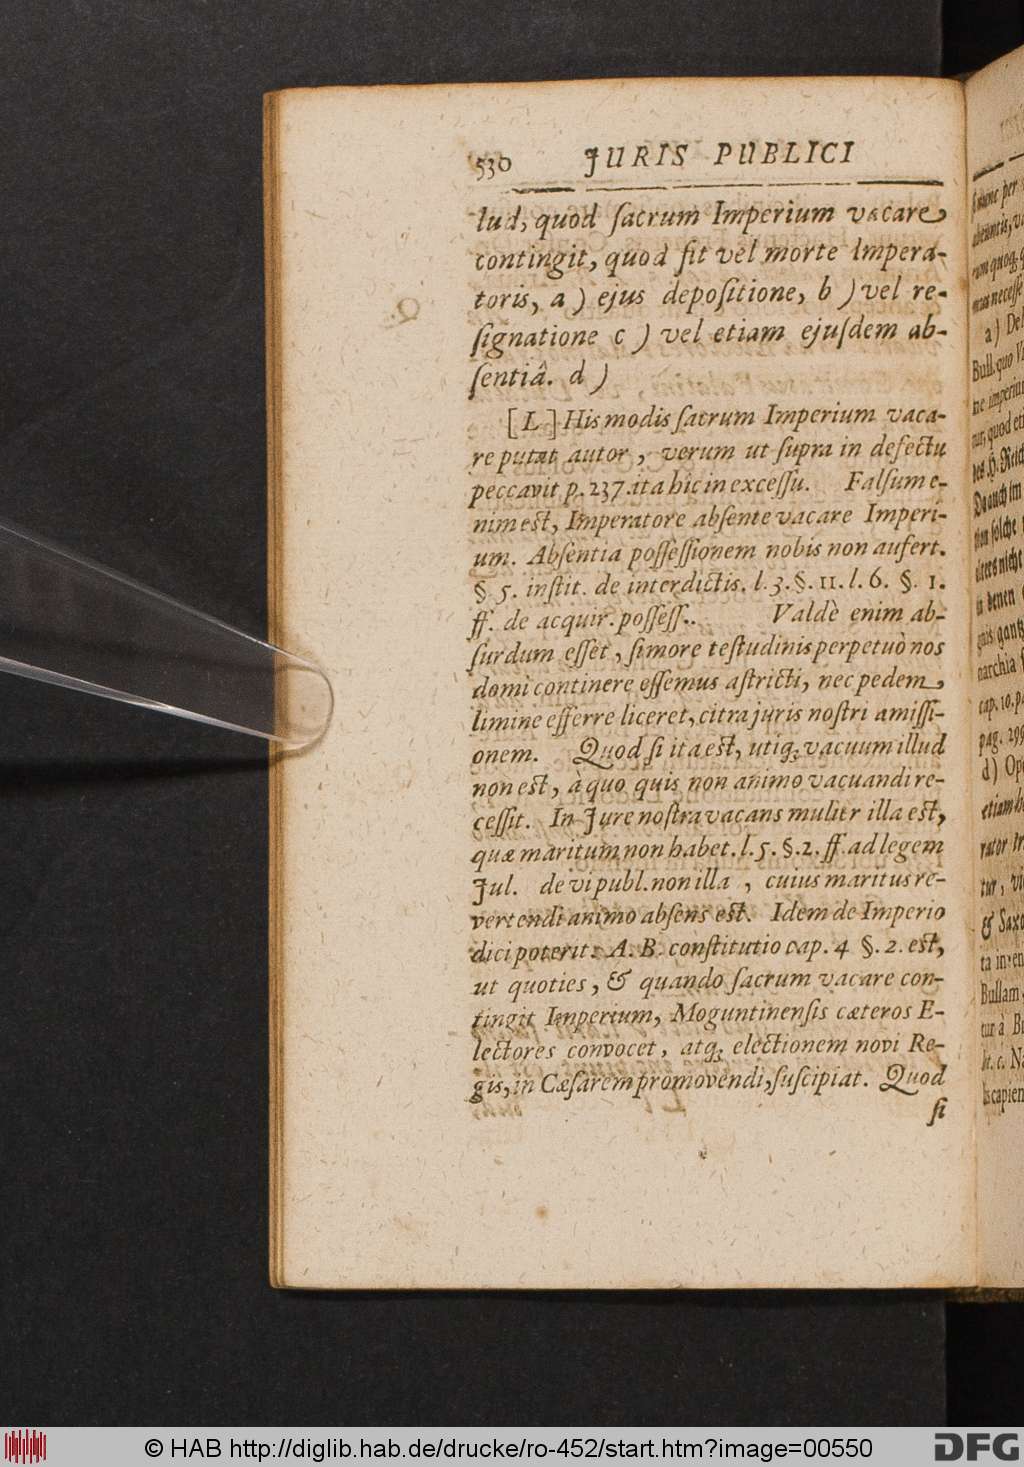 530 JURIS PUBLICI
lud, quod ſacrum Imperium vacare
contingit, quod fit vel morte Impera-
toris, a ) ejus depoſitione, b ) vel re-
ſignatione c ) vel etiam ejuſdem ab-
ſentiâ. d )
[L] His modis ſacrum Imperium vaca-
re putat autor, verum ut ſupra in defectu
peccavit p. 237. ita hic in exceſſu. Falſum e-
nim est, Imperatore abſente vacare Imperi-
um. Abſentia poſſeſſionem nobis non aufert.
§ 5. inſtit. de interdictis. l. 3. §. 11. l. 6. §. 1.
ff. de acquir. poſſeſſ.. Valdè enim ab-
ſurdum eſſet, ſi more teſtudinis perpetuò nos
domi continere eſſemus aſtricti, nec pedem
limine efferre liceret, citra juris noſtri amiſſi-
onem. Quod ſi ita est, utiqꝫ vacuum illud
non est, à quo quis non animo vacuandi re-
ceſſit. In Jure noſtra vacans mulitr illa est,
quæ maritum non habet. l. 5. §. 2. ff. ad legem
Jul. de vi publ. non illa, cuius maritus re-
vertendi animo abſens est. Idem de Imperio
dici poterit. A. B. conſtitutio cap. 4 §. 2. est,
ut quoties, & quando ſacrum vacare con-
tingit Imperium, Moguntinenſis cæteros E-
lectores convocet, atqꝫ electionem novi Re-
gis, in Cæſarem promovendi, ſuſcipiat. Quod
ſi
a) De
Bull. quo
cap. 10. p.
pag. 299
d) Op
& Saxo
Bullam,
© HAB http://diglib.hab.de/drucke/ro-452/start.htm?image=00550
DFG